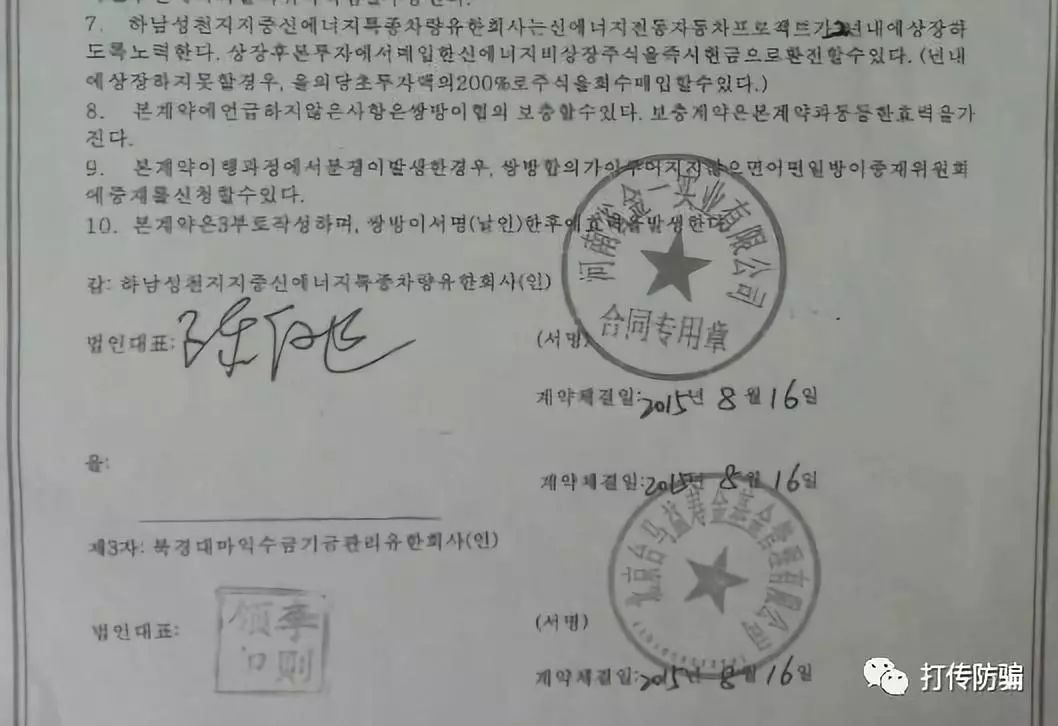 7. 하남성천지지중신에너지특종차량유한회사는신에너지전동자동차프로젝트가2년내에상장하
도록노력한다. 상장후본투자에서매입한신에너지비상장주식을즉시현금으로환전할수있다. (년내
에상장하지못할경우, 을의당초투자액의200%로주식을회수매입할수있다.)
8. 본계약에언급하지않은사항은쌍방이협의 보충할수있다. 보충계약은본계약과동등한효력을가
진다.
9. 본계약이행과정에서분쟁이발생한경우, 쌍방합의가이루어지지않으면어떤일방이중재위원회
에중재를신청할수있다.
10. 본계약은3부토작성하며, 쌍방이서명(날인)한후에효력을발생한다.
河南 金一实业有限公司
合同专用章
갑: 하남성천지지중신에너지특종차량유한회사(인)
법인대표:
(서명)
계약체결일:2015년 8월 16일
을:
계약체결일:2015년 8월 16일
제3자: 북경대마익수금기금관리유한회사(인)
법인대표:
(서명)
계약체결일:2015년 8월 16일
打传防骗